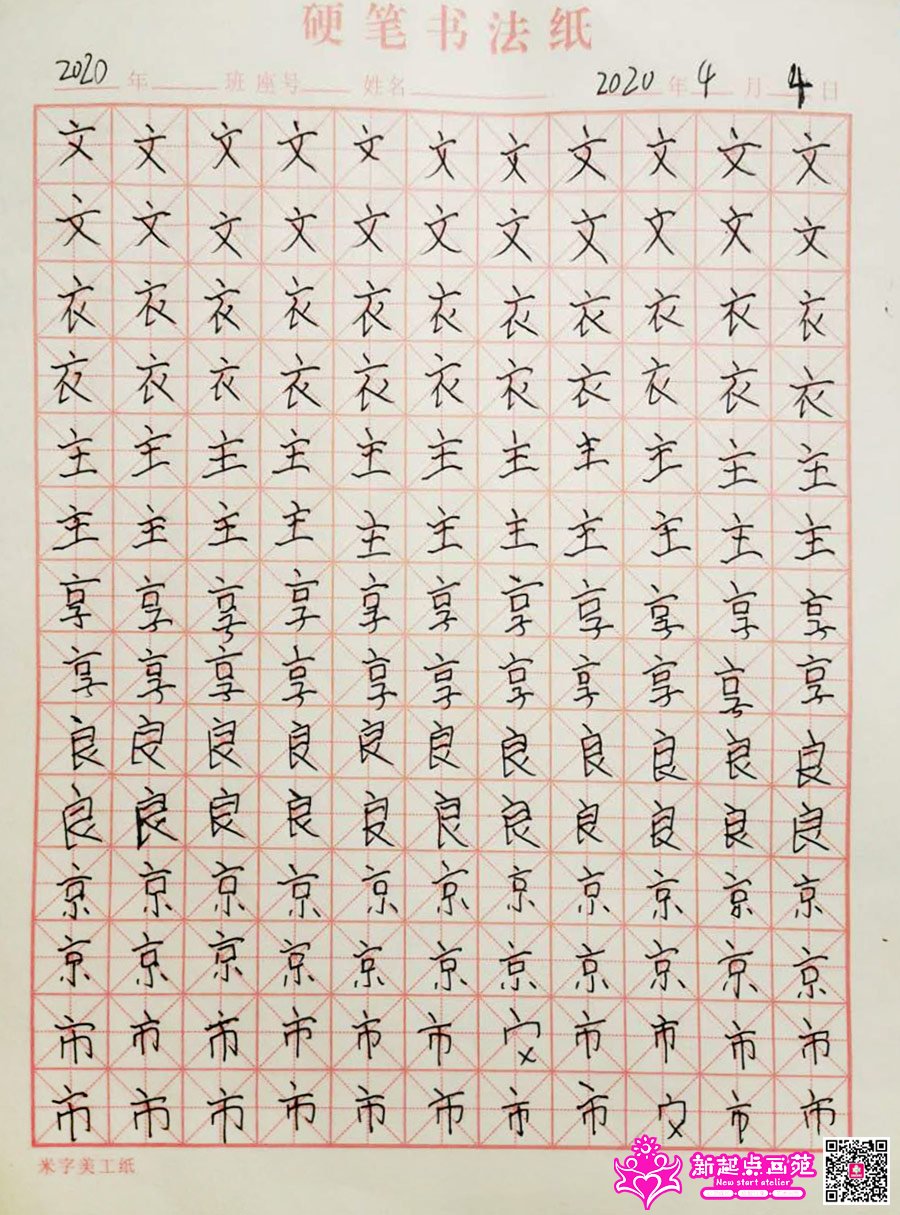 硬笔书法纸
2020年 班 座号 姓名 2020年4月4日
文文文文文文文文文文文
文文文文文文文文文文文
衣衣衣衣衣衣衣衣衣衣衣
衣衣衣衣衣衣衣衣衣衣衣
主主主主主主主主主主主
主主主主主主主主主主主
享享享享享享享享享享享
享享享享享享享享享享享
良良良良良良良良良良良
良良良良良良良良良良良
京京京京京京京京京京京
京京京京京京京京京京京
市市市市市市市市市市
市市市市市市市市市市
米字美工纸
新起点画苑
New start atelier